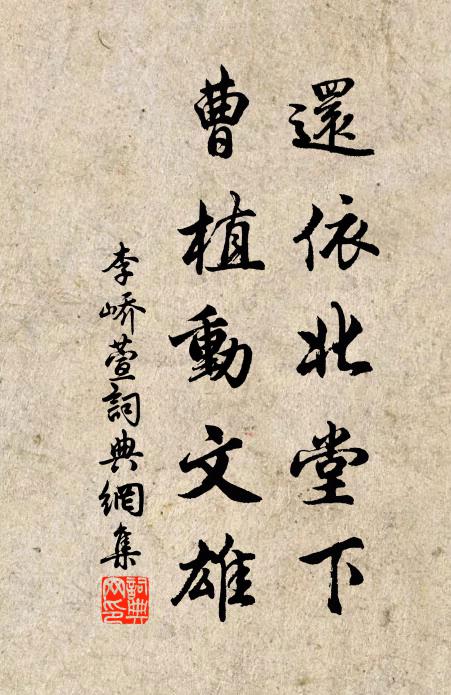 還依北堂下
曹植動文雄
李嶠萱詞典網集
詞典網印